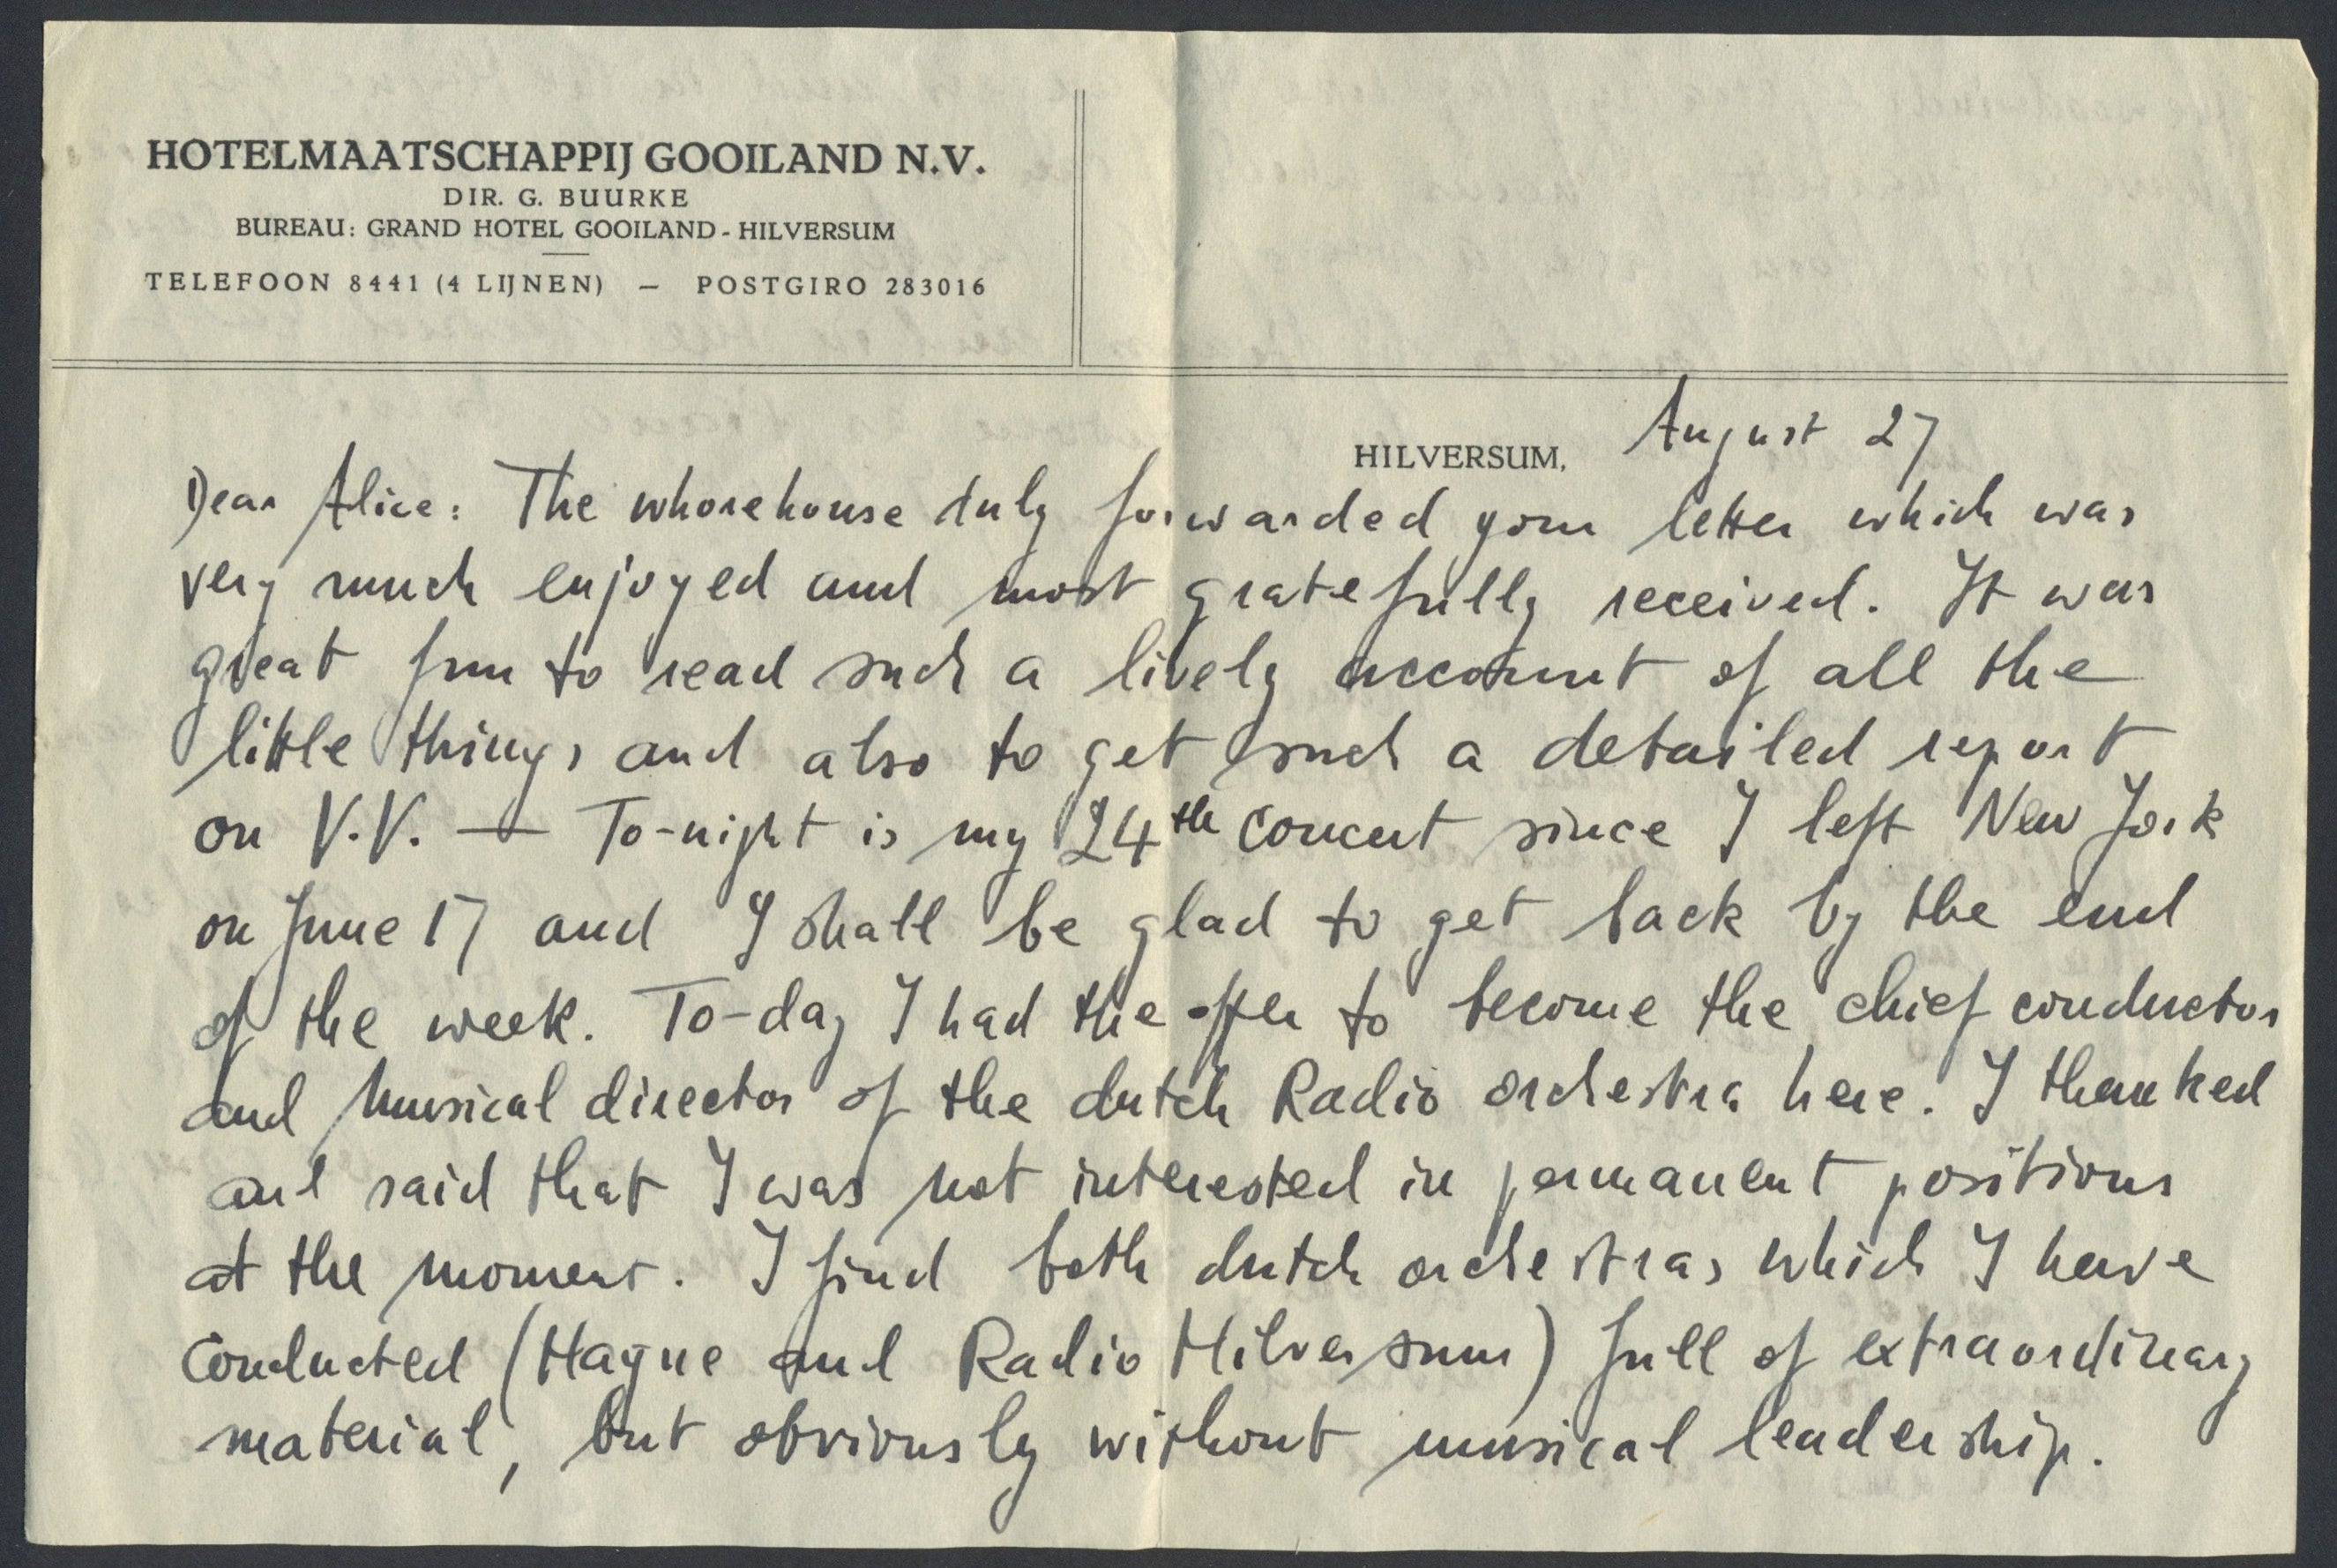 HOTELMAATSCHAPPIJ GOOILAND N.V.
DIR. G. BUURKE
BUREAU: GRAND HOTEL GOOILAND - HILVERSUM
TELEFOON 8441 (4 LIJNEN) — POSTGIRO 283016
HILVERSUM, August 27
Dear Alice: The whorehouse duly forwarded your letter which was
very much enjoyed and most gratefully received. It was
great fun to read such a lively account of all the
little things and also to get such a detailed report
on V.V. — To-night is my 24th concert since I left New York
on June 17 and I shall be glad to get back by the end
of the week. To-day I had the offer to become the chief conductor
and musical director of the dutch Radio orchestra here. I thanked
and said that I was not interested in permanent positions
at the moment. I find both dutch orchestras which I have
conducted (Hague and Radio Hilversum) full of extraordinary
material, but obviously without musical leadership.